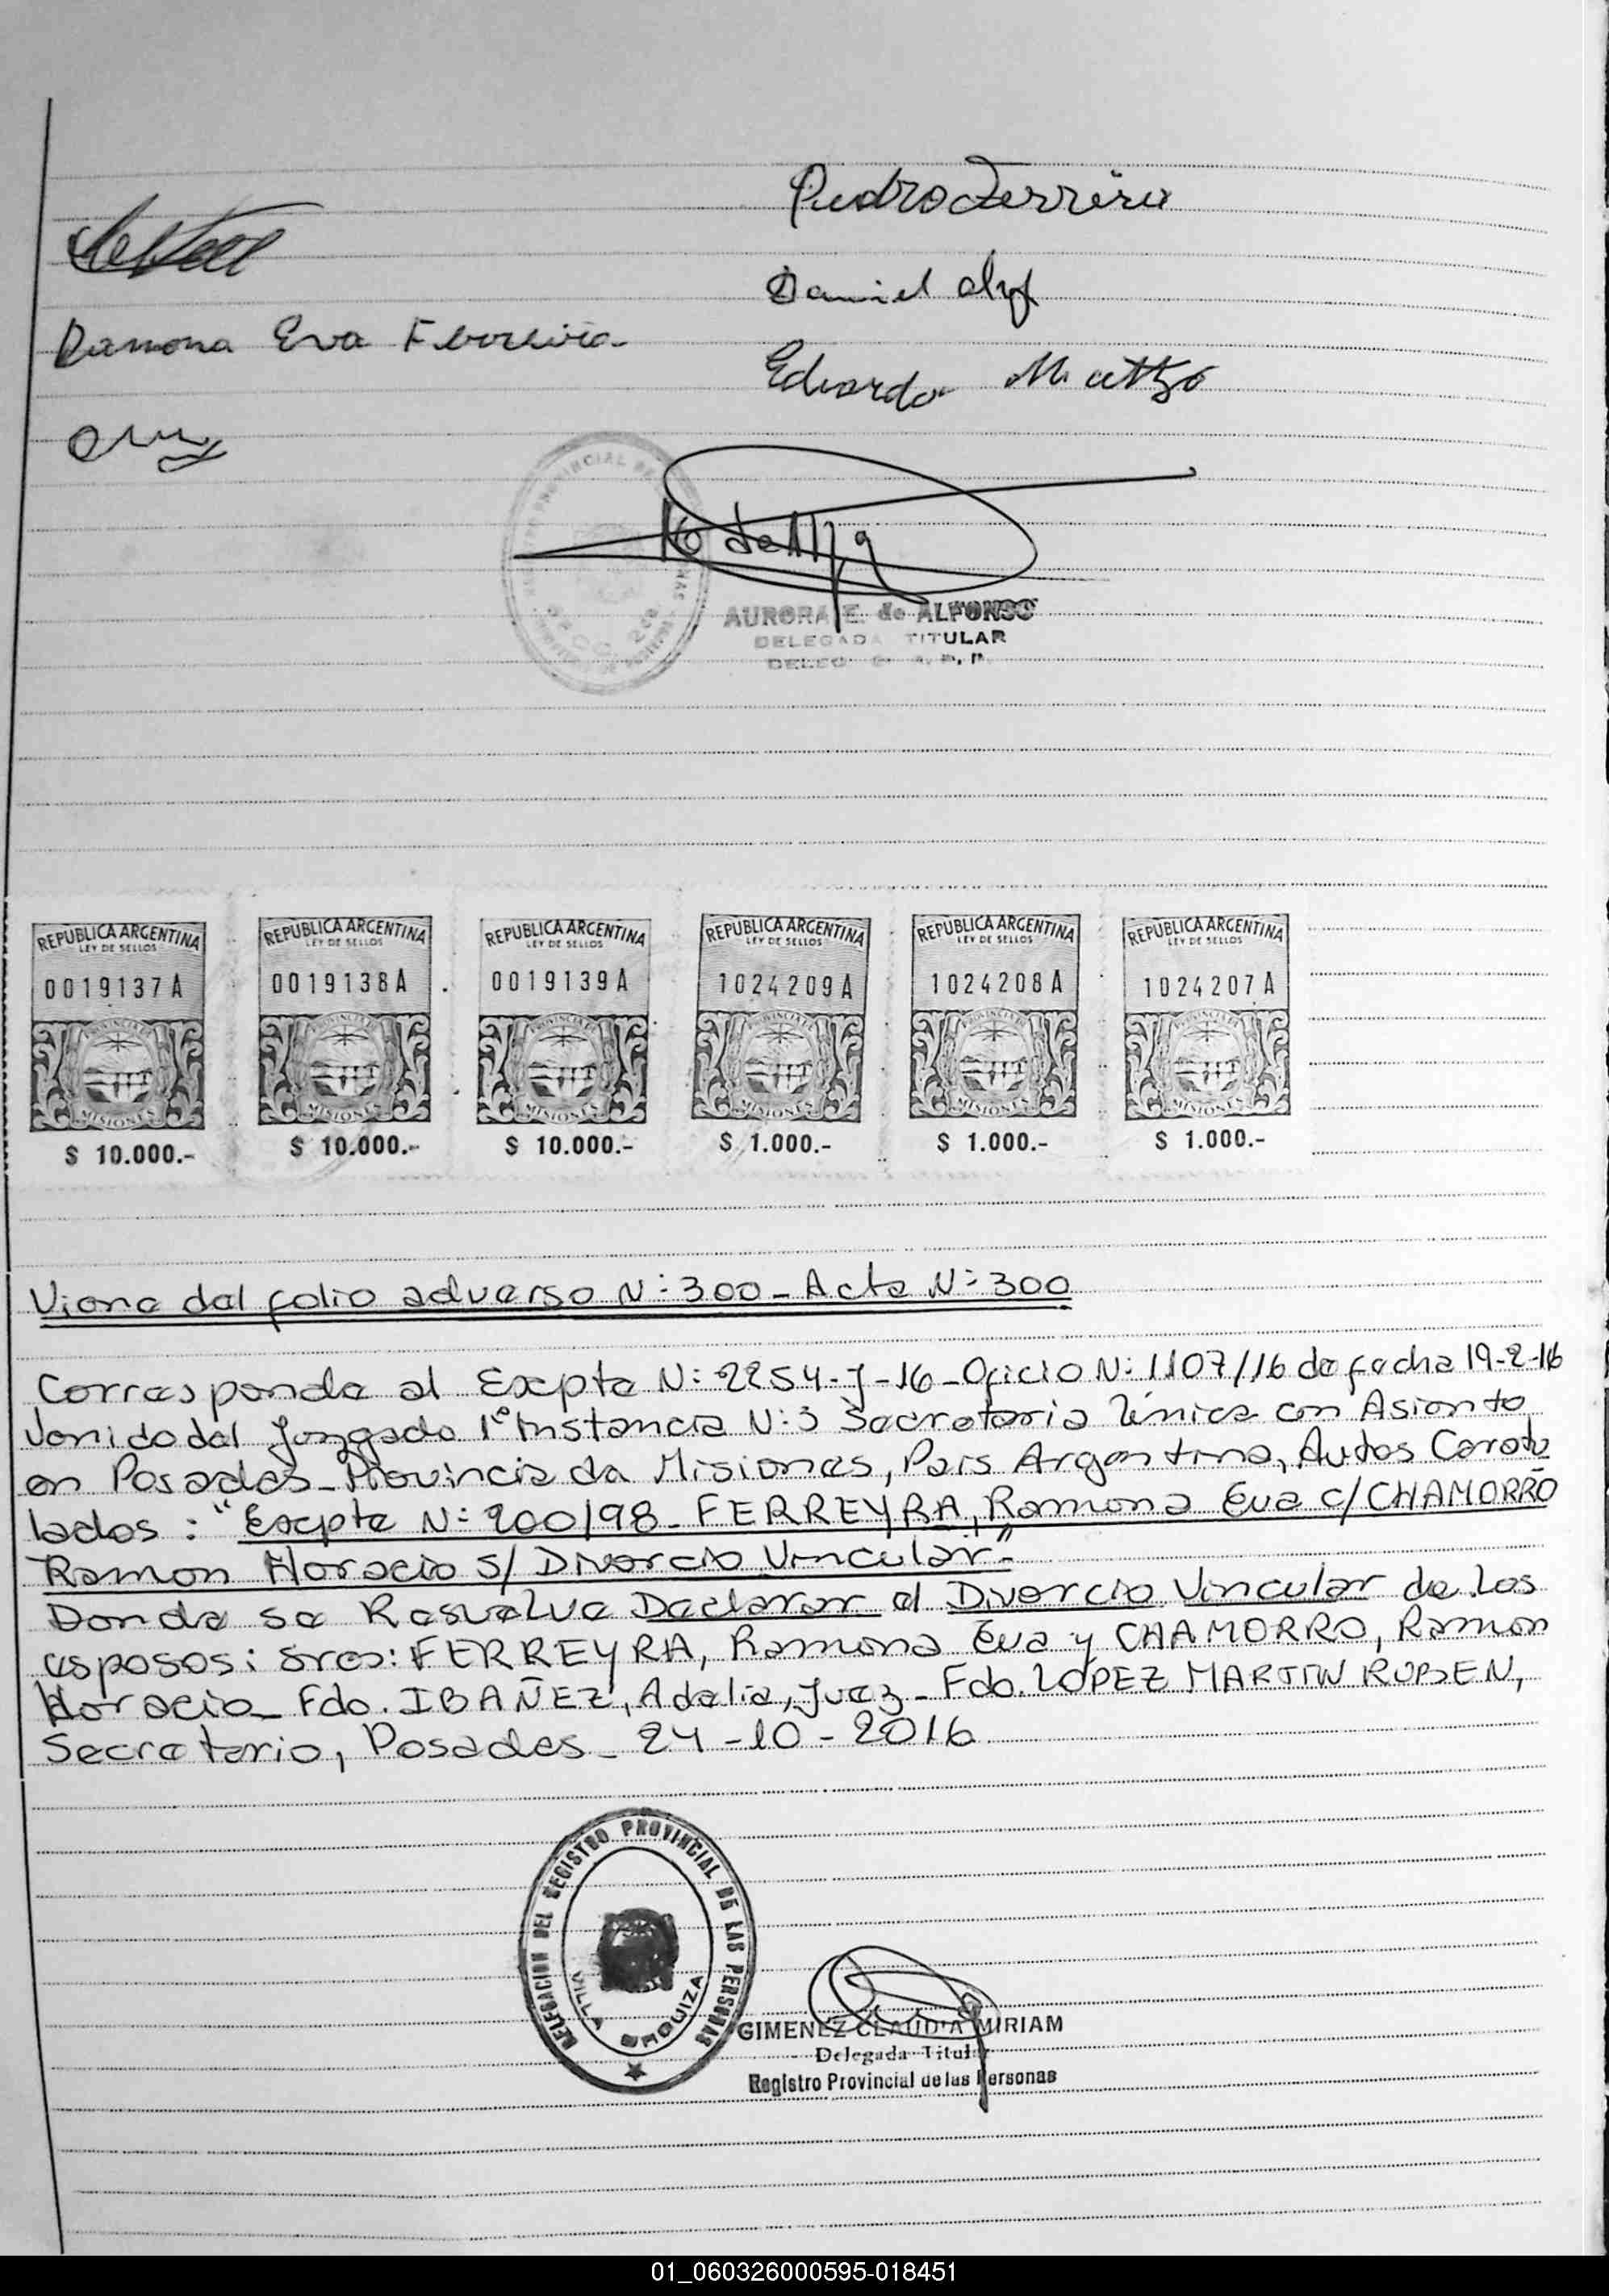 Pedro Ferreira
Daniel
Ramona Eva Ferreira
Eduardo
REGISTRO PROVINCIAL DE
AURORA E. de ALFONSO
DELEGADA TITULAR
REPUBLICA ARGENTINA REPUBLICA ARGENTINA REPUBLICA ARGENTINA REPUBLICA ARGENTINA REPUBLICA ARGENTINA REPUBLICA ARGENTINA
LEY DE SELLOS LEY DE SELLOS LEY DE SELLOS LEY DE SELLOS LEY DE SELLOS LEY DE SELLOS
0019137A 0019138A 0019139A 1024209A 1024208A 1024207A
PROVINCIA DE PROVINCIA DE PROVINCIA DE PROVINCIA DE PROVINCIA DE PROVINCIA DE
MISIONES MISIONES MISIONES MISIONES MISIONES MISIONES
$ 10.000.- $ 10.000.- $ 10.000.- $ 1.000.- $ 1.000.- $ 1.000.-
Viene del folio adverso N: 300 - Acta N: 300
Corresponde al Expte N: 2254-J-16 - Oficio N: 1107/16 de fecha 19-2-16
Venido del Juzgado 1º Instancia N: 3 Secretaria Única con Asiento
en Posadas - Provincia de Misiones, Pais Argentina, Autos Caratu
lados : "Expte N: 200/98 - FERREYRA, Ramona Eva c/ CHAMORRO
Ramon Horacio s/ Divorcio Vincular."
Donde se Resuelve Declarar el Divorcio Vincular de los
esposos: Sres: FERREYRA, Ramona Eva y CHAMORRO, Ramon
Horacio - Fdo. IBAÑEZ, Adelia, Juez - Fdo. LOPEZ MARTIN RUBEN,
Secretario, Posadas - 24 - 10 - 2016
DELEGACION DEL REGISTRO PROVINCIAL DE LAS PERSONAS
VILLA URQUIZA
GIMENEZ CLAUDIA MIRIAM
Delegada Titular
Registro Provincial de las Personas
01_060326000595-018451